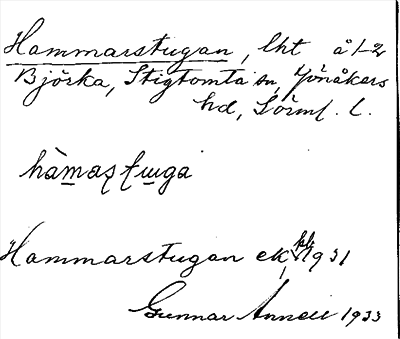 Hammarstugan, lht å 1-2
Björka, Stigtomta sn, Jönåkers
hd, Sörml. l.
hàmastɯga
Hammarstugan ek bl 1931
Gunnar Annell 1933